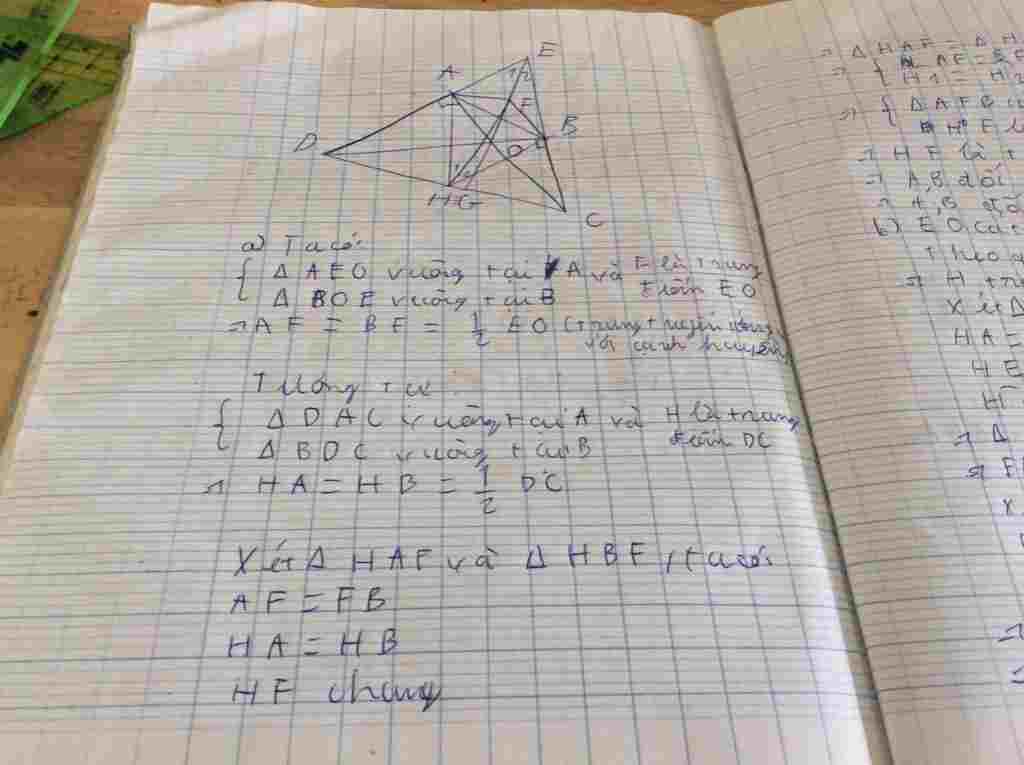 E
A
1 2
F
B
D
O
1 2
H G
C
a) Ta có:
{ Δ AEO vuông tại A và F là trung
Δ BOE vuông tại B điểm EO
⇒ AF = BF = 1/2 EO (trung tuyến ứng
với cạnh huyền)
Tương tự
{ Δ DAC vuông tại A và H là trung
Δ BDC vuông tại B điểm DC
⇒ HA = HB = 1/2 DC
Xét Δ HAF và Δ HBF, ta có:
AF = FB
HA = HB
HF chung
⇒ Δ HAF = Δ H
⇒ {
H1 = H2
⇒ { Δ AFB
⇒ HF là
⇒ A, B đối
⇒ A, B
b) EO cắt
⇒ H
Xét Δ
HA =
HE
⇒ Δ